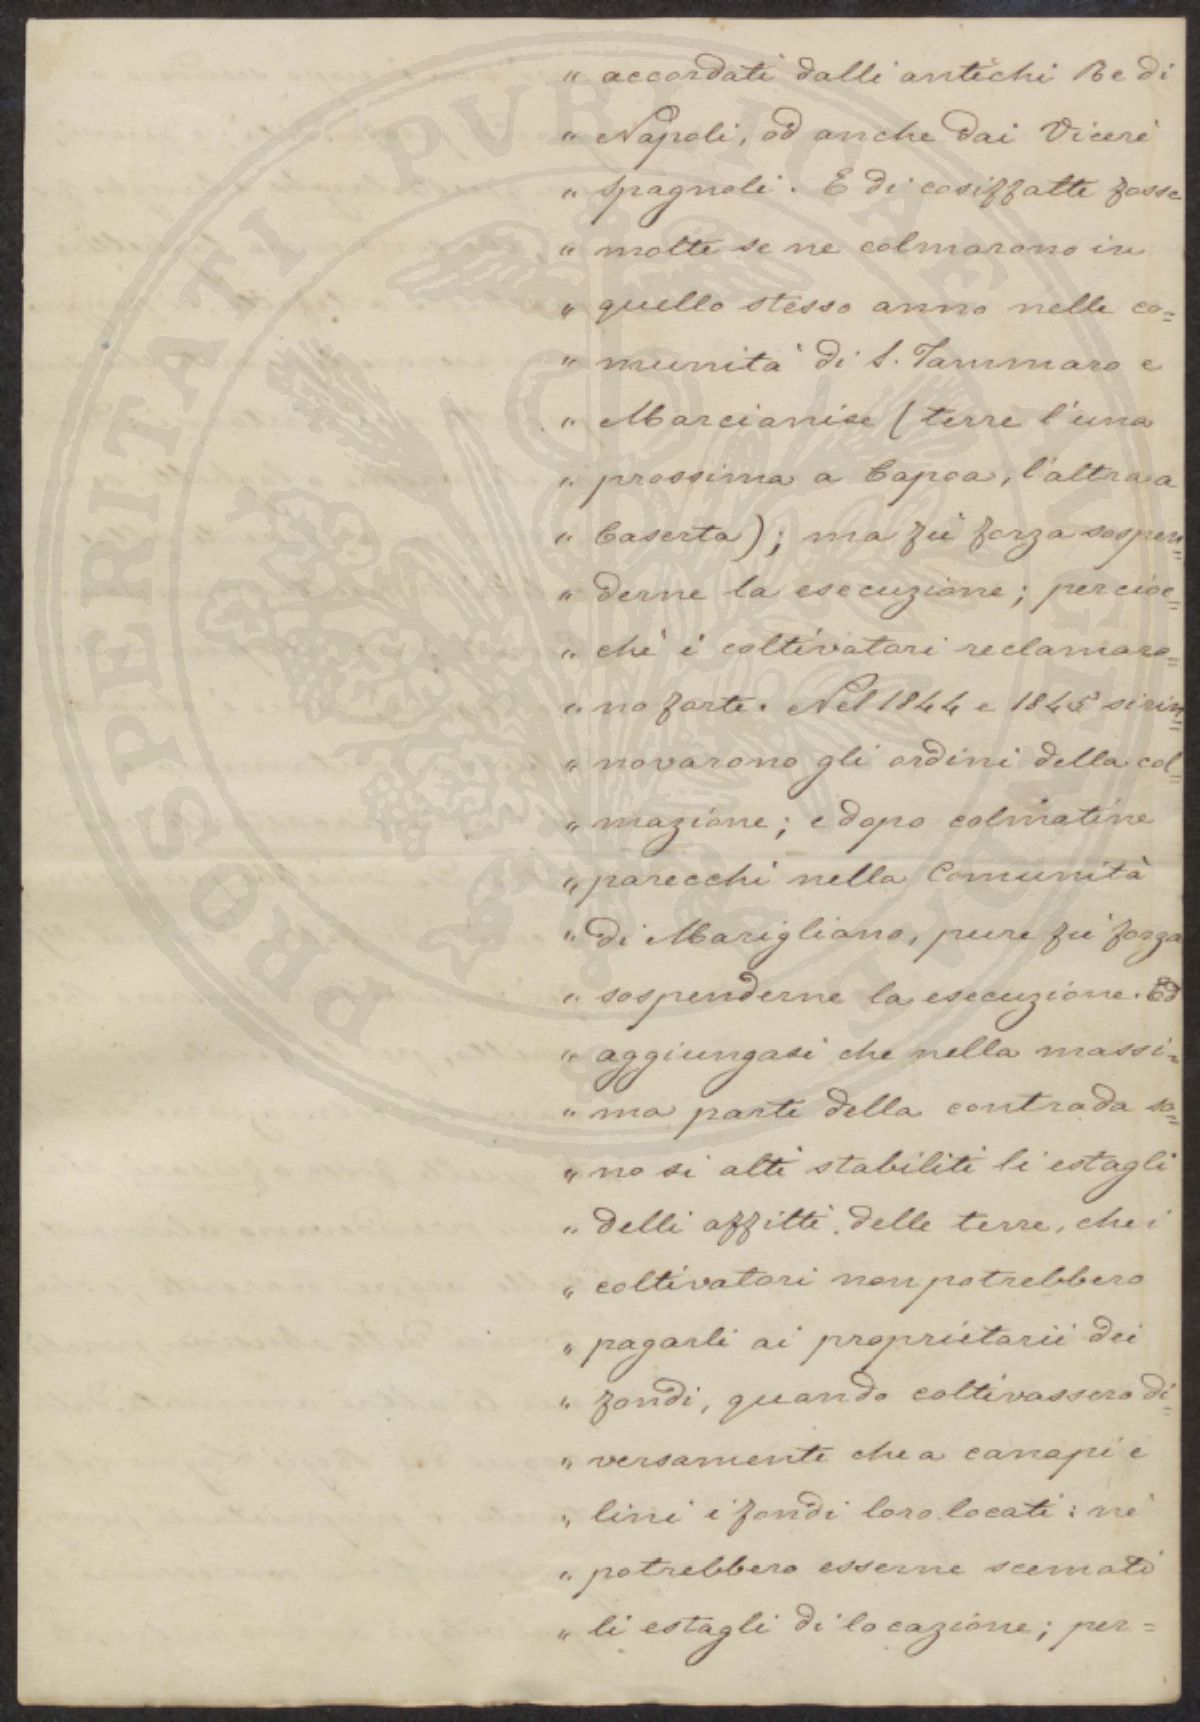 PROSPERITATI PVBLICAE AVGENDAE
" accordati dalli antichi Re di
" Napoli, od anche dai Vicerè
" spagnoli. E di cosiffatte fosse
" molte se ne colmarono in
" quello stesso anno nelle co=
" munità di S. Tammaro e
" Marcianise (terre l'una
" prossima a Capoa, l'altra a
" Caserta); ma fu forza sospen=
" derne la esecuzione; percioc=
" chè i coltivatori reclamaro=
" no forte. Nel 1844 e 1845 si rin=
" novarono gli ordini della col=
" mazione; e dopo colmatine
" parecchi nella Comunità
" di Marigliano, pure fu forza
" sospenderne la esecuzione. Ed
" aggiungasi che nella massi=
" ma parte della contrada so=
" no sì alti stabiliti li estagli
" delli affitti delle terre, che i
" coltivatori non potrebbero
" pagarli ai proprietarii dei
" fondi, quando coltivassero di=
" versamente che a canapi e
" lini i fondi loro locati: nè
" potrebbero esserne scemati
" li estagli di locazione; per=